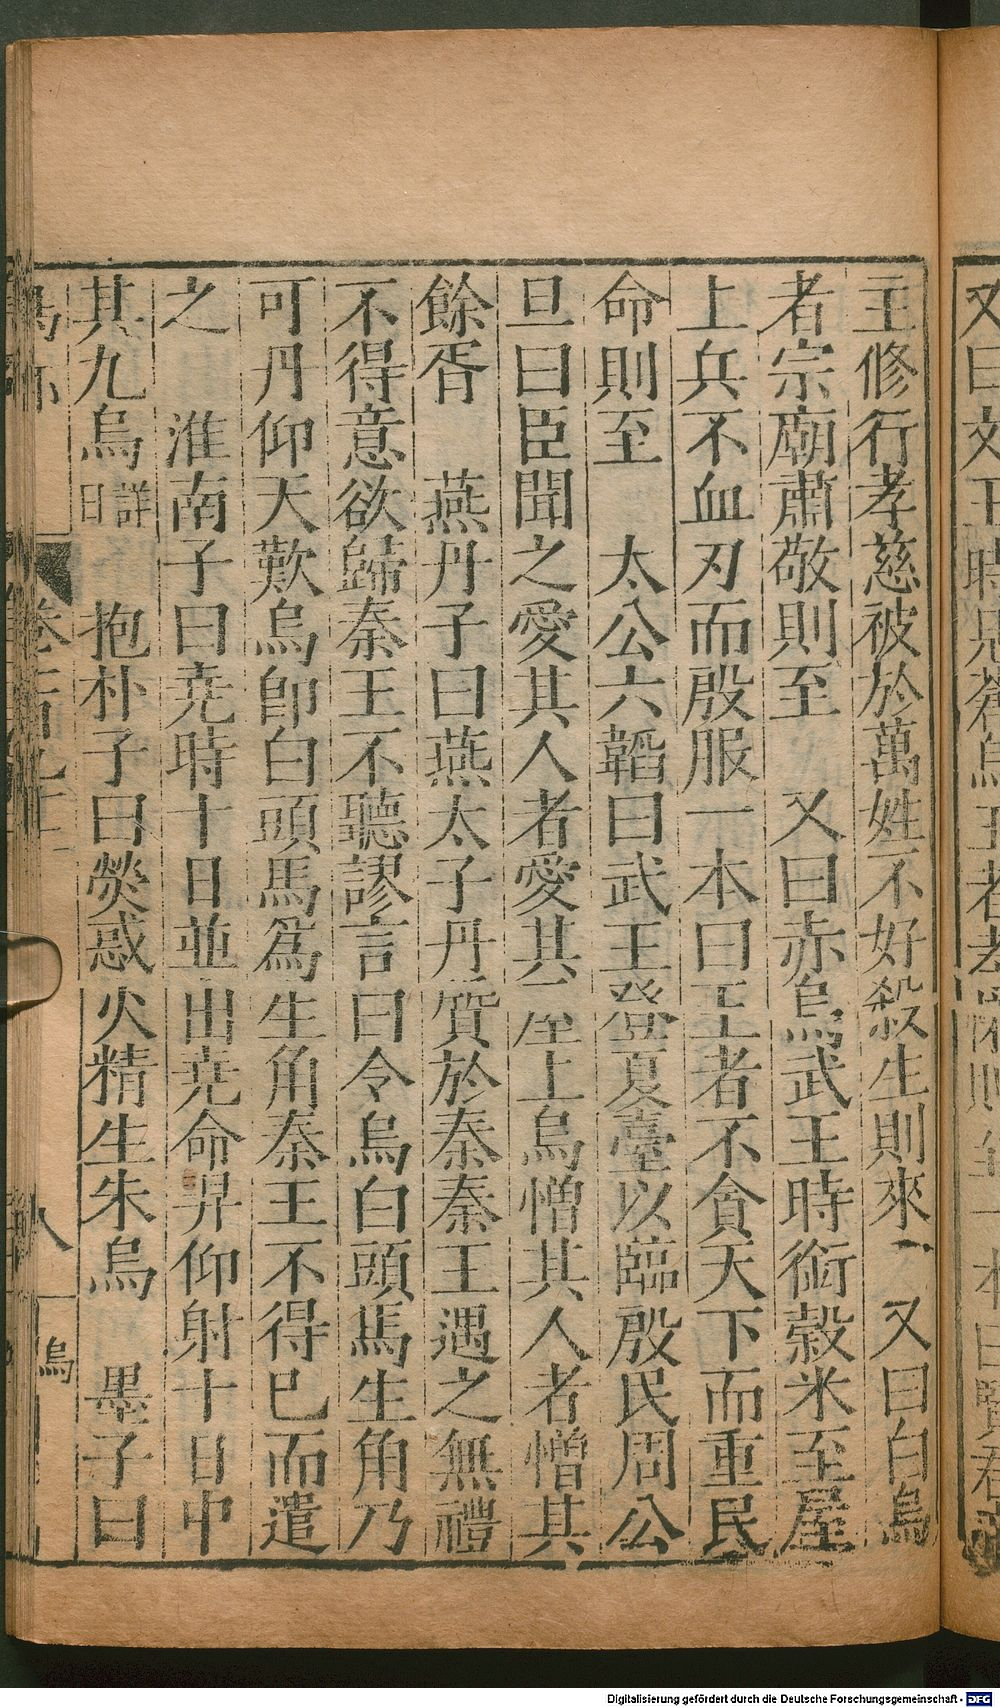 主修行孝慈被於萬姓不好殺生則來 又曰白烏
者宗廟肅敬則至 又曰赤烏武王時銜穀米至屋
上兵不血刃而殷服一本曰王者不貪天下而重民
命則至 太公六韜曰武王登夏臺以臨殷民周公
旦曰臣聞之愛其人者愛其屋上烏憎其人者憎其
餘胥 燕丹子曰燕太子丹質於秦秦王遇之無禮
不得意欲歸秦王不聽謬言曰令烏白頭馬生角乃
可丹仰天歎烏即白頭馬為生角秦王不得已而遣
之 淮南子曰尭時十日並出尭命羿仰射十日中
其九烏詳日 抱朴子曰熒惑火精生朱烏 墨子曰
八
烏
Digitalisierung gefördert durch die Deutsche Forschungsgemeinschaft - DFG